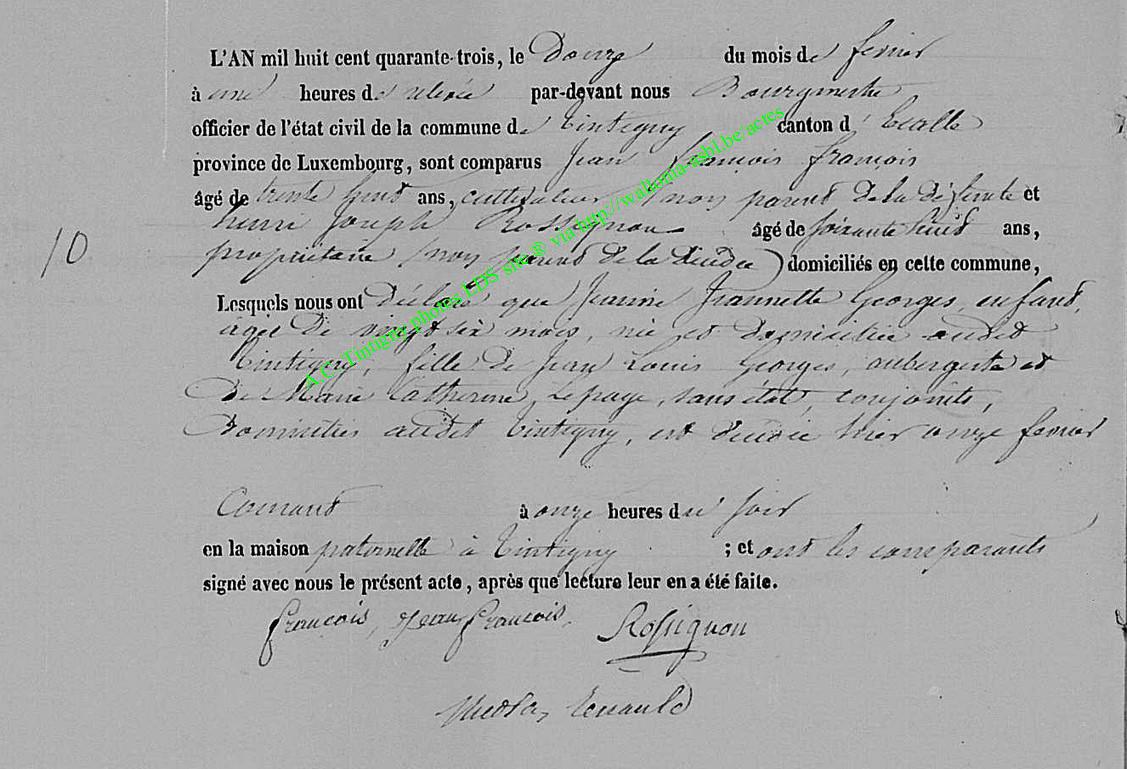 L'AN mil huit cent quarante-trois, le Douze du mois de fevrier
à une heures de relevée par-devant nous Bourgmestre
officier de l'état civil de la commune de Tintigny canton d' Etalle
province de Luxembourg, sont comparus Jean françois françois
âgé de trente huit ans, cultivateur (non parent de la défunte et
henri Joseph Rossignon âgé de soixante huit ans,
10
propriétaire (non parent de la décédée) domiciliés en cette commune,
Lesquels nous ont déclaré que Jeanne Jeannette Georges, enfant,
agée De vingt six mois, née et domiciliée audit
Tintigny, fille de Jean Louis Georges, aubergiste et
De Marie Catherine Lepage, sans état, conjoints,
Domiciliés audit Tintigny, est décédée hier onze fevrier
Courant à onze heures du soir
en la maison paternelle à Tintigny ; et ont les comparants
signé avec nous le présent acte, après que lecture leur en a été faite.
françois, Jean françois. Rossignon
Nicolas
A.C. Tintigny photos LDS site® via http://wallonia-asbl.be/actes